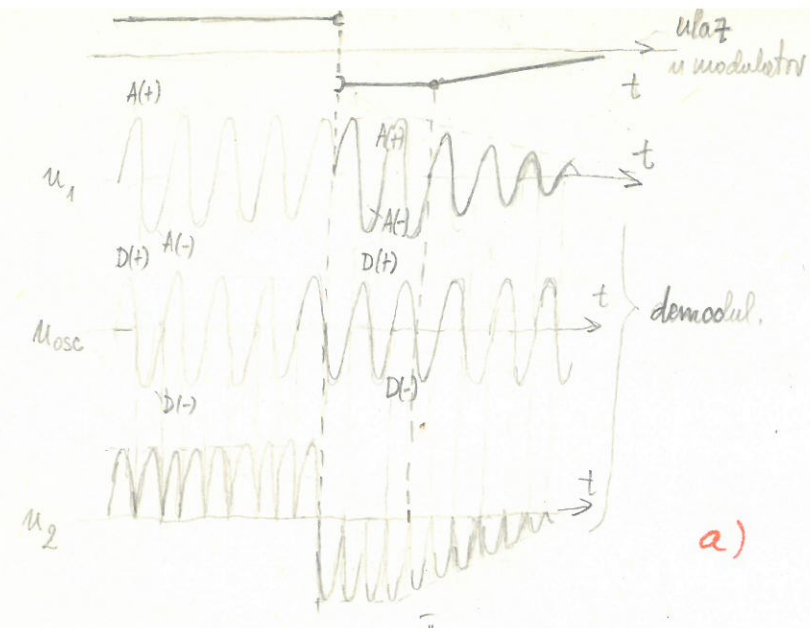 ulaz
u modulator
t
A(+)
A(+)
t
u₁
A(-)
A(-)
D(+)
D(+)
t
demodul.
uosc
D(-)
D(-)
t
u₂
a)